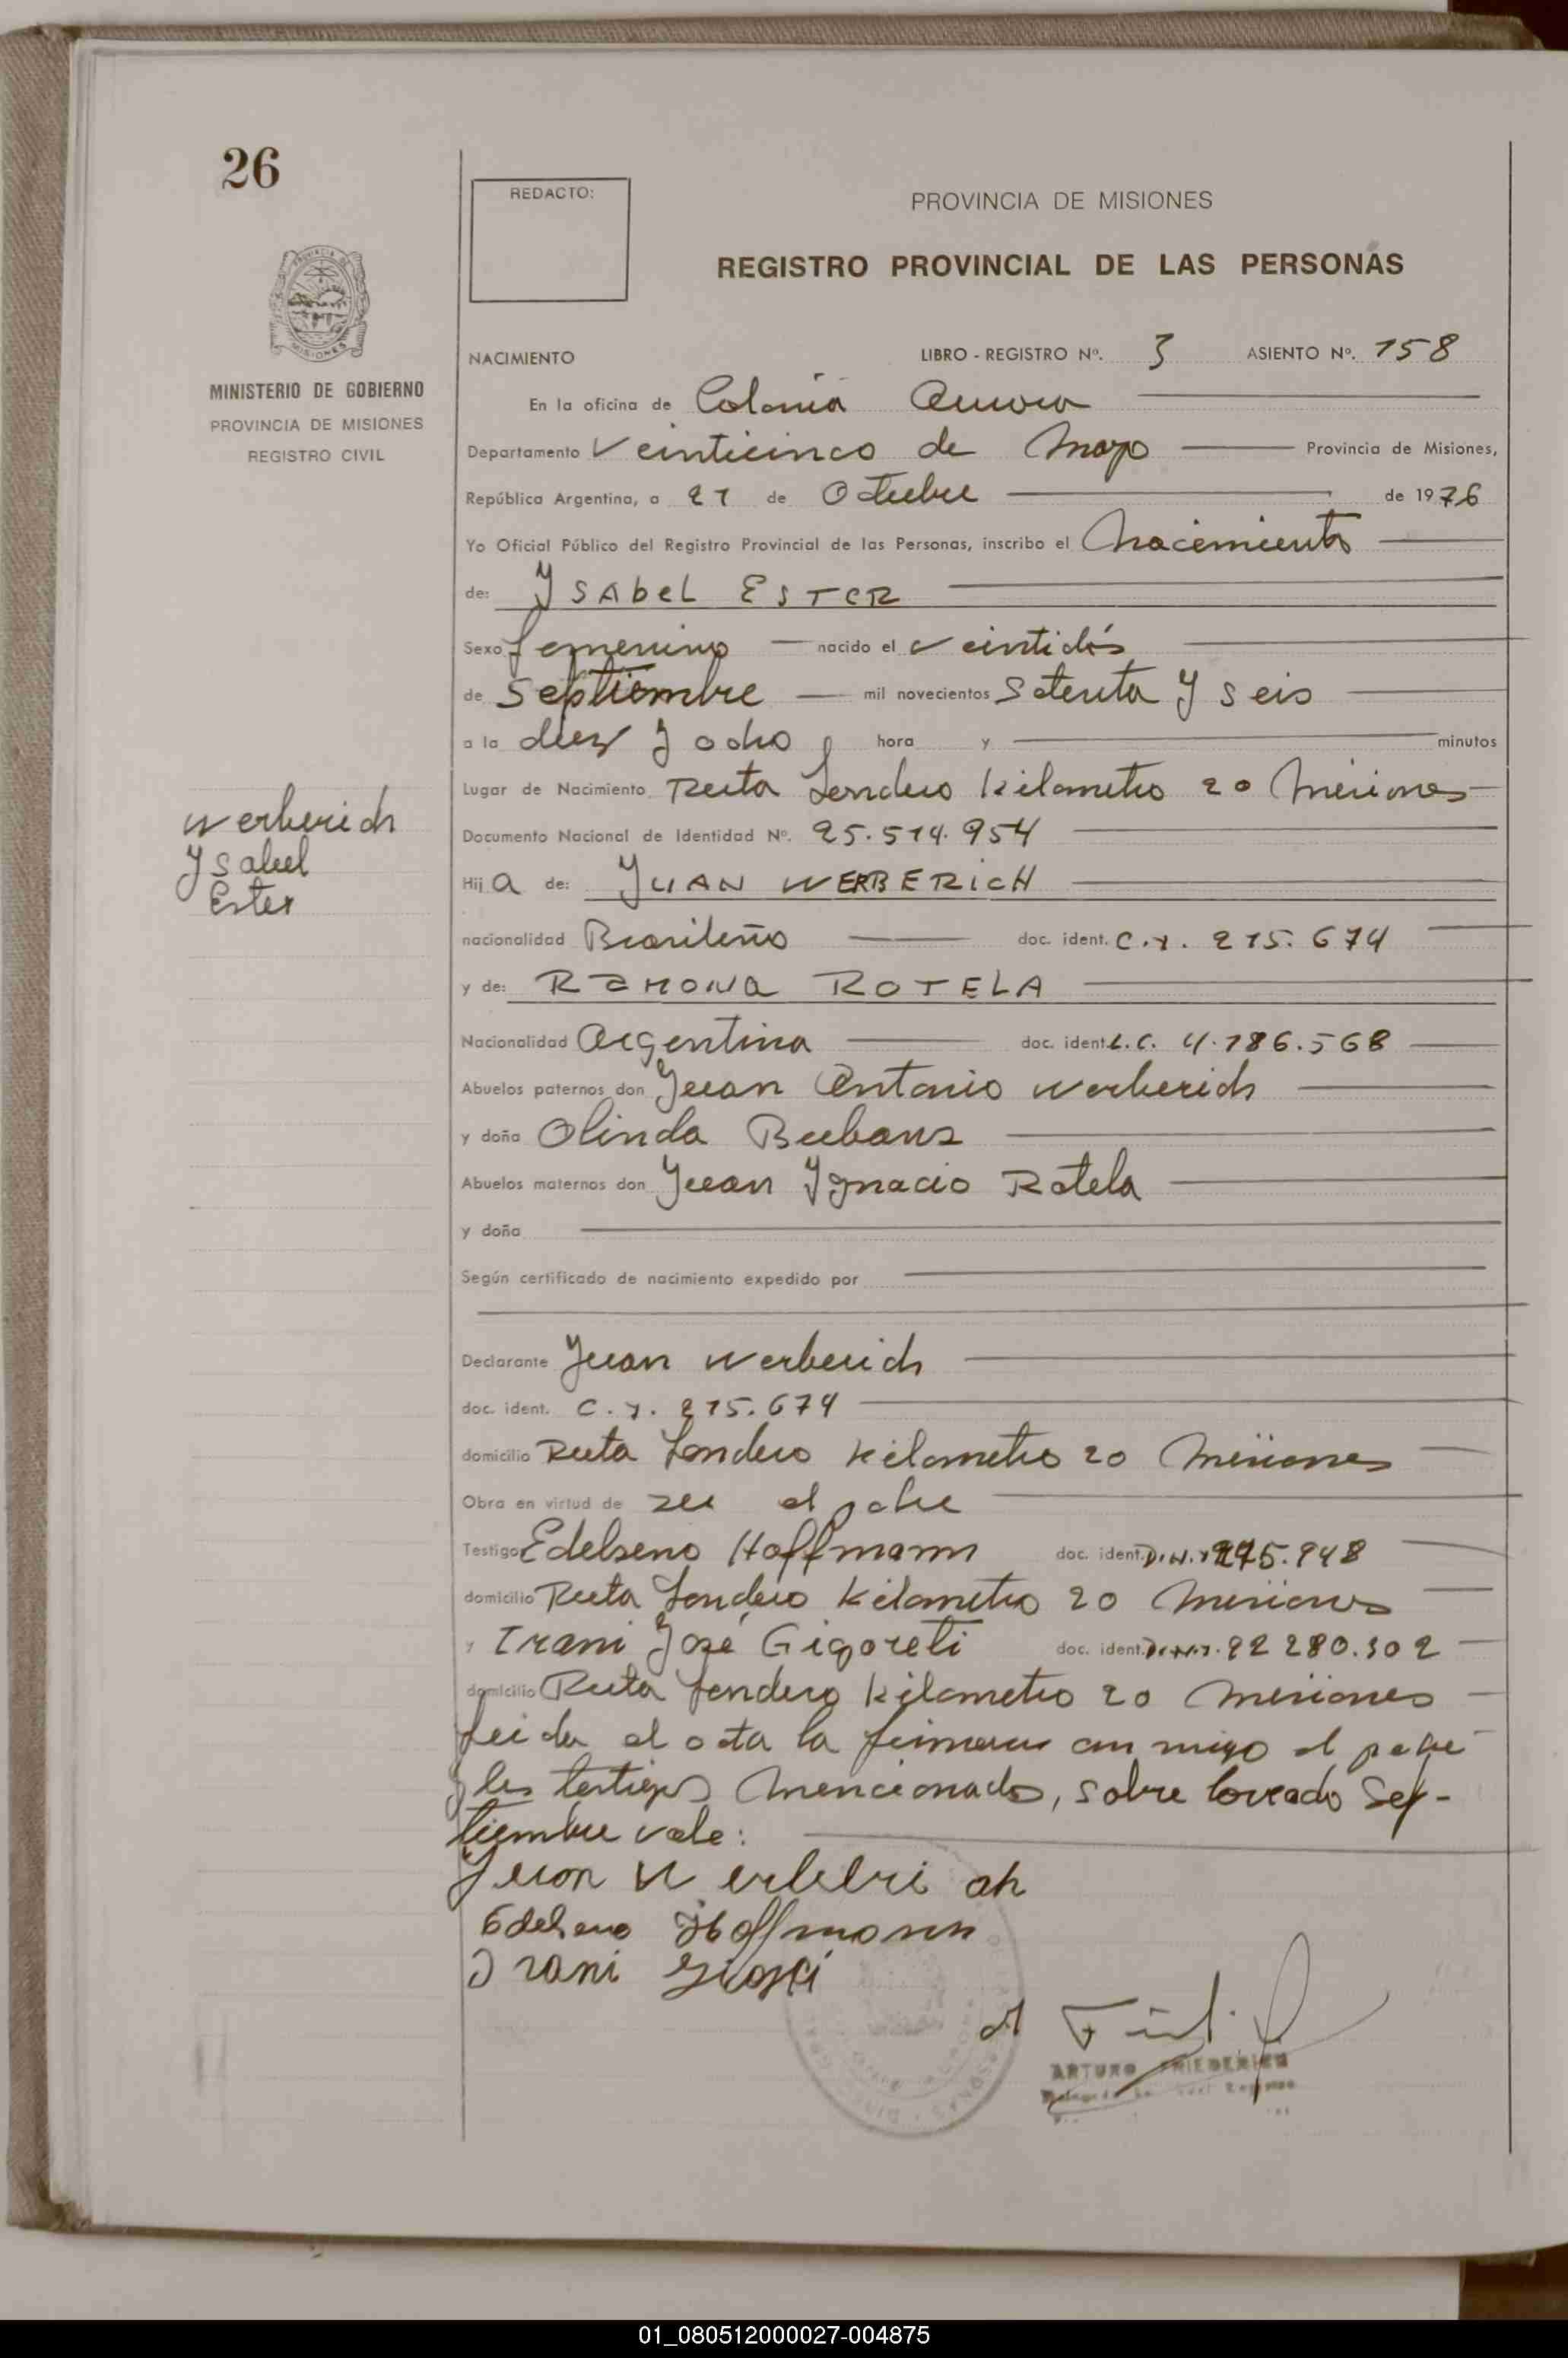 26
REDACTO:
PROVINCIA DE MISIONES
REGISTRO PROVINCIAL DE LAS PERSONAS
MISIONES
MINISTERIO DE GOBIERNO
PROVINCIA DE MISIONES
REGISTRO CIVIL
NACIMIENTO LIBRO - REGISTRO Nº. 3 ASIENTO Nº. 158
En la oficina de Colonia Aurora
Departamento Veinticinco de Mayo Provincia de Misiones,
República Argentina, a 21 de Octubre de 1976
Yo Oficial Público del Registro Provincial de las Personas, inscribo el Nacimiento
de: YSAbeL ESTER
Sexo femenino nacido el veintidós
de Septiembre mil novecientos Setenta y seis
a la diez y ocho hora y minutos
Lugar de Nacimiento Ruta Kilometro 20 Misiones
Documento Nacional de Identidad Nº. 25.514.954
Werberich
Ysabel
Ester
Hij a de: JUAN WERBERICH
nacionalidad Brasileño doc. ident. C.I. 215.674
y de: RAMONA ROTELA
Nacionalidad Argentina doc. ident. L.C. 4.186.568
Abuelos paternos don Juan Antonio Werberich
y doña Olinda
Abuelos maternos don Juan Ygnacio Rotela
y doña
Según certificado de nacimiento expedido por
Declarante Juan Werberich
doc. ident. C.I. 215.674
domicilio Ruta Kilometro 20 Misiones
Obra en virtud de ser el padre
Testigo Hoffmann doc. ident. D.N.I.
domicilio Ruta Kilometro 20 Misiones
y Irani José Gigoreti doc. ident. D.N.I. 92 280.302
domicilio Ruta Kilometro 20 Misiones
Leida el acta la firman con migo el padre
y los testigos Mencionados, sobre borrado Sep-
tiembre vale:
Juan Werberi ch
Hoffmann
Irani
ARTURO